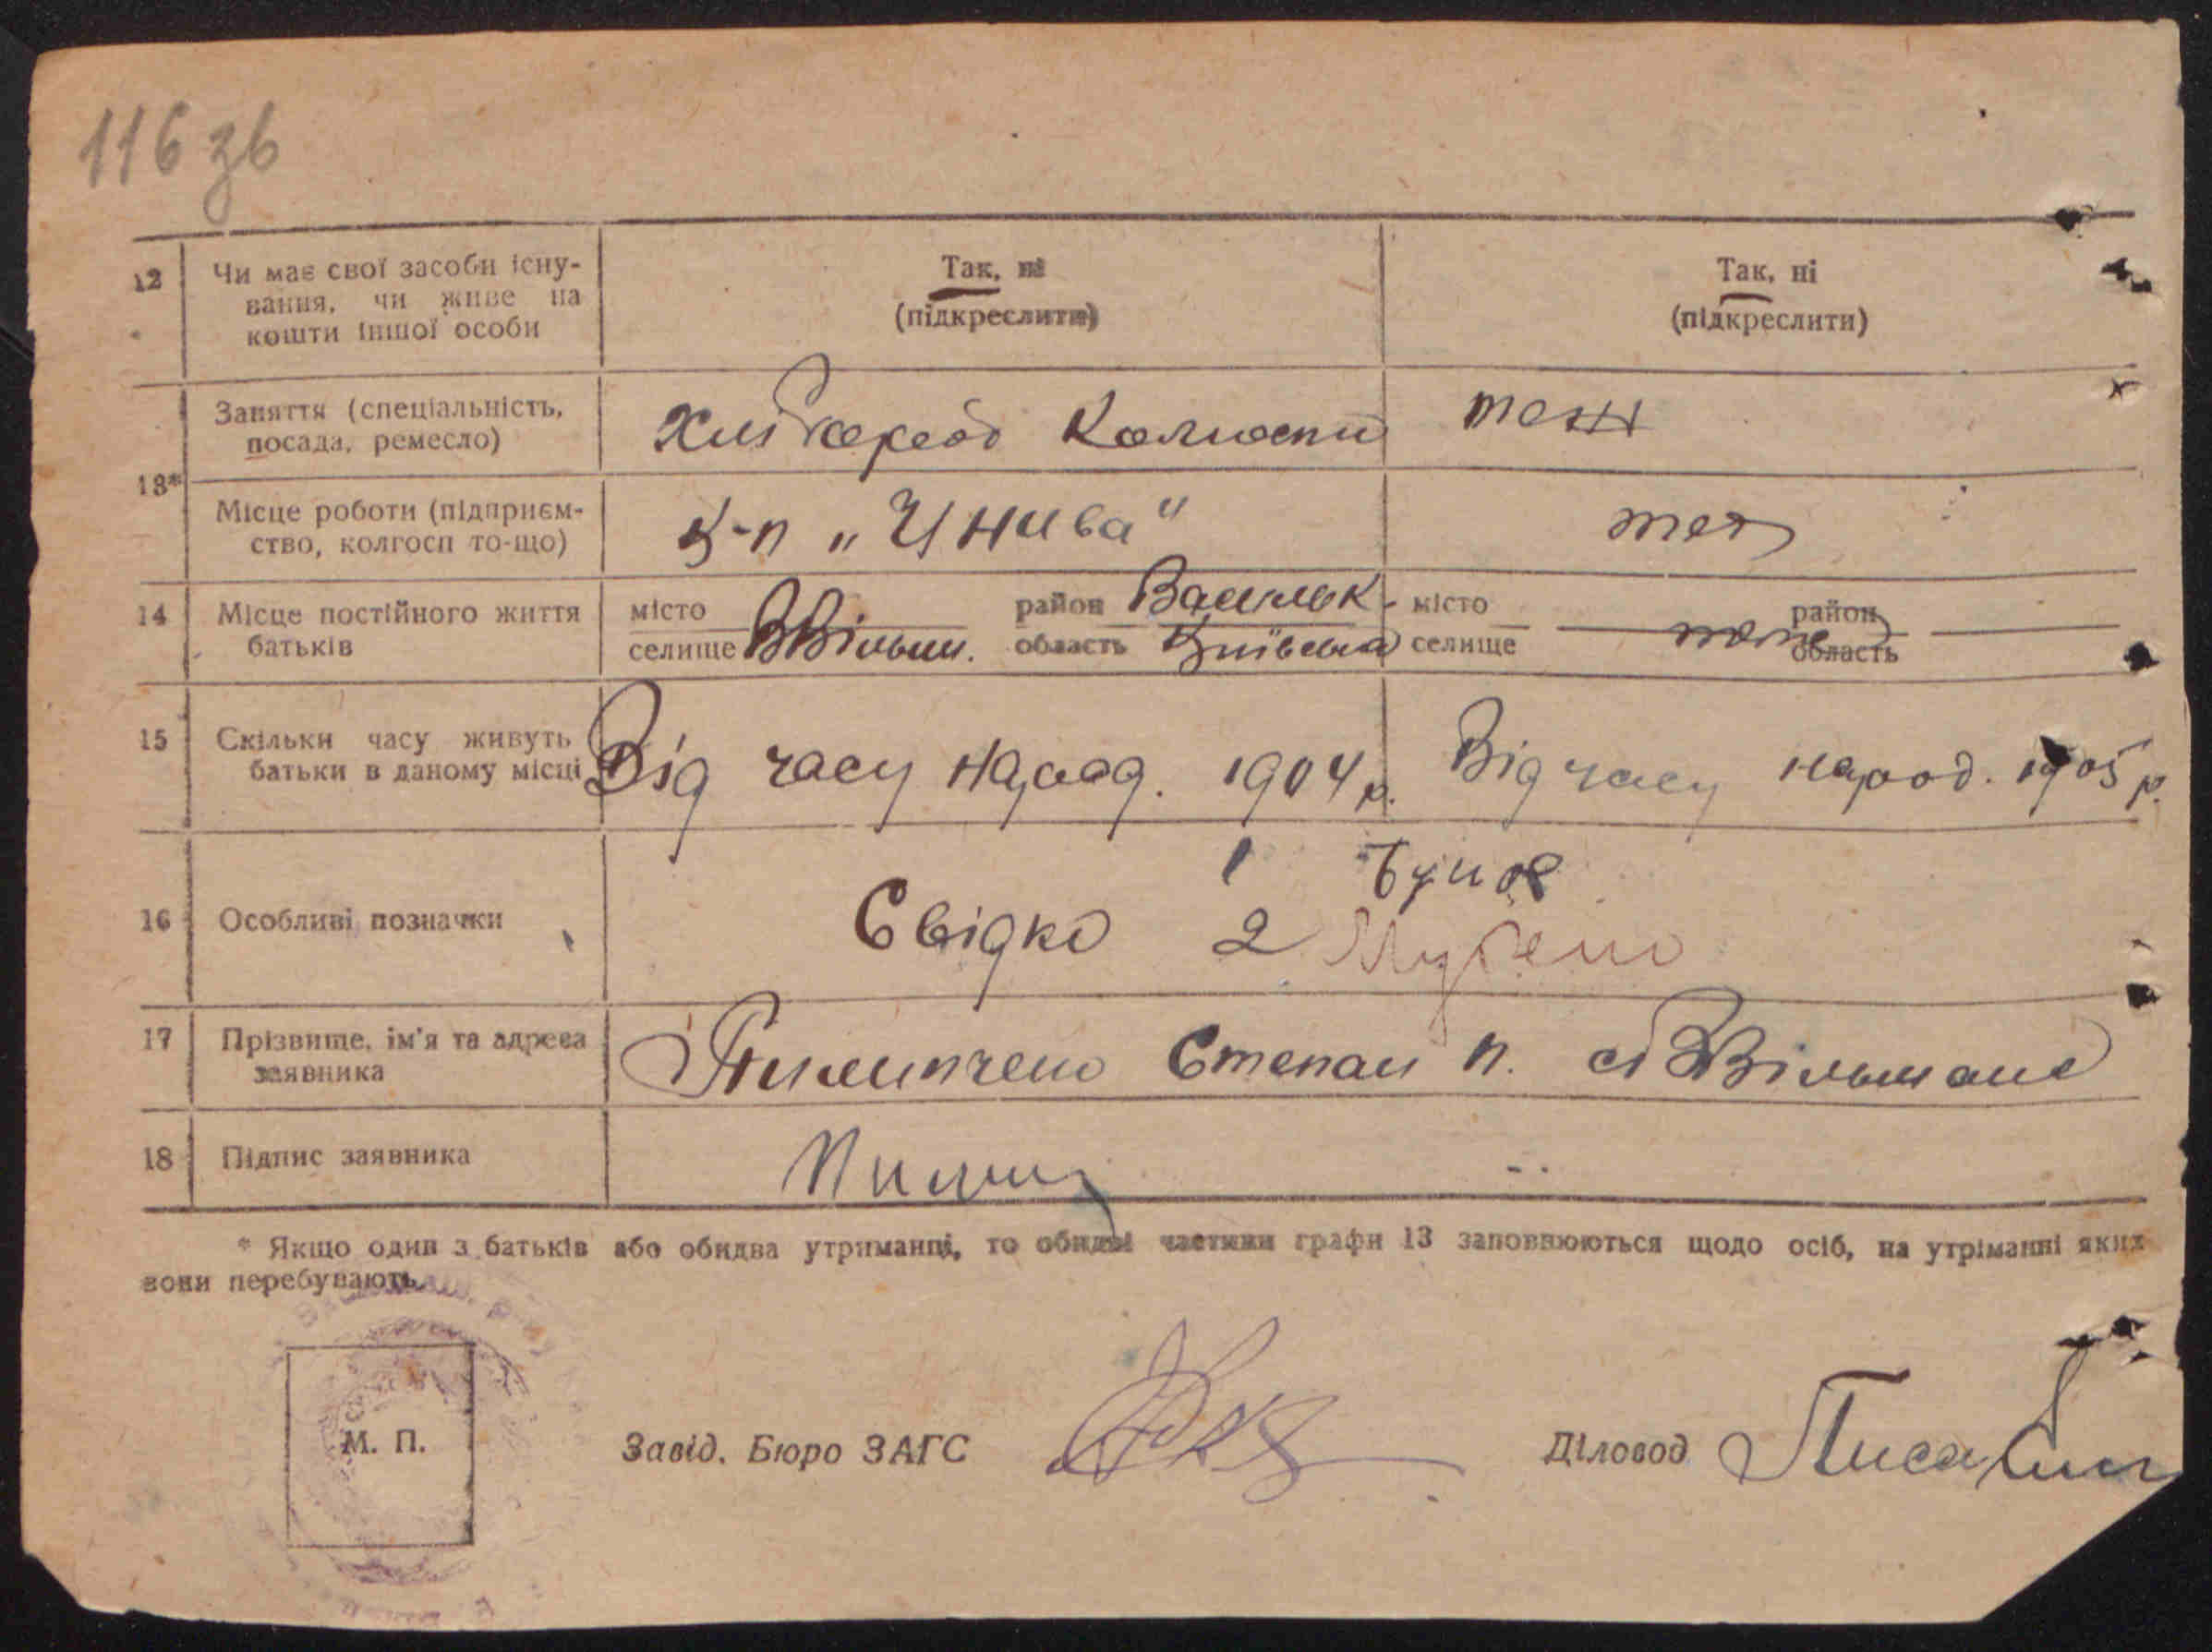 116 зв
12 Чи має свої засоби існу- Так, ні Так, ні
вання, чи живе на (підкреслити) (підкреслити)
кошти іншої особи
Заняття (спеціальність, Хлібороб Колгосп теж
посада, ремесло)
13*
Місце роботи (підприєм- к-п „Ц Нива" теж
ство, колгосп то-що)
14 Місце постійного життя місто район Васильк. місто район
батьків селище ВВільш. область Київська селище область
15 Скільки часу живуть Від часу народ. 1904 р. Від часу народ. 1905 р.
батьки в даному місці
1
16 Особливі позначки Свідко 2
17 Прізвище, ім'я та адреса Пилипченко Степан П. с ВВільшана
заявника
18 Підпис заявника
* Якщо один з батьків або обидва утриманці, то обидві частини графи 13 заповнюються щодо осіб, на утріманні яких
вони перебувають.
М. П.
Завід. Бюро ЗАГС Діловод